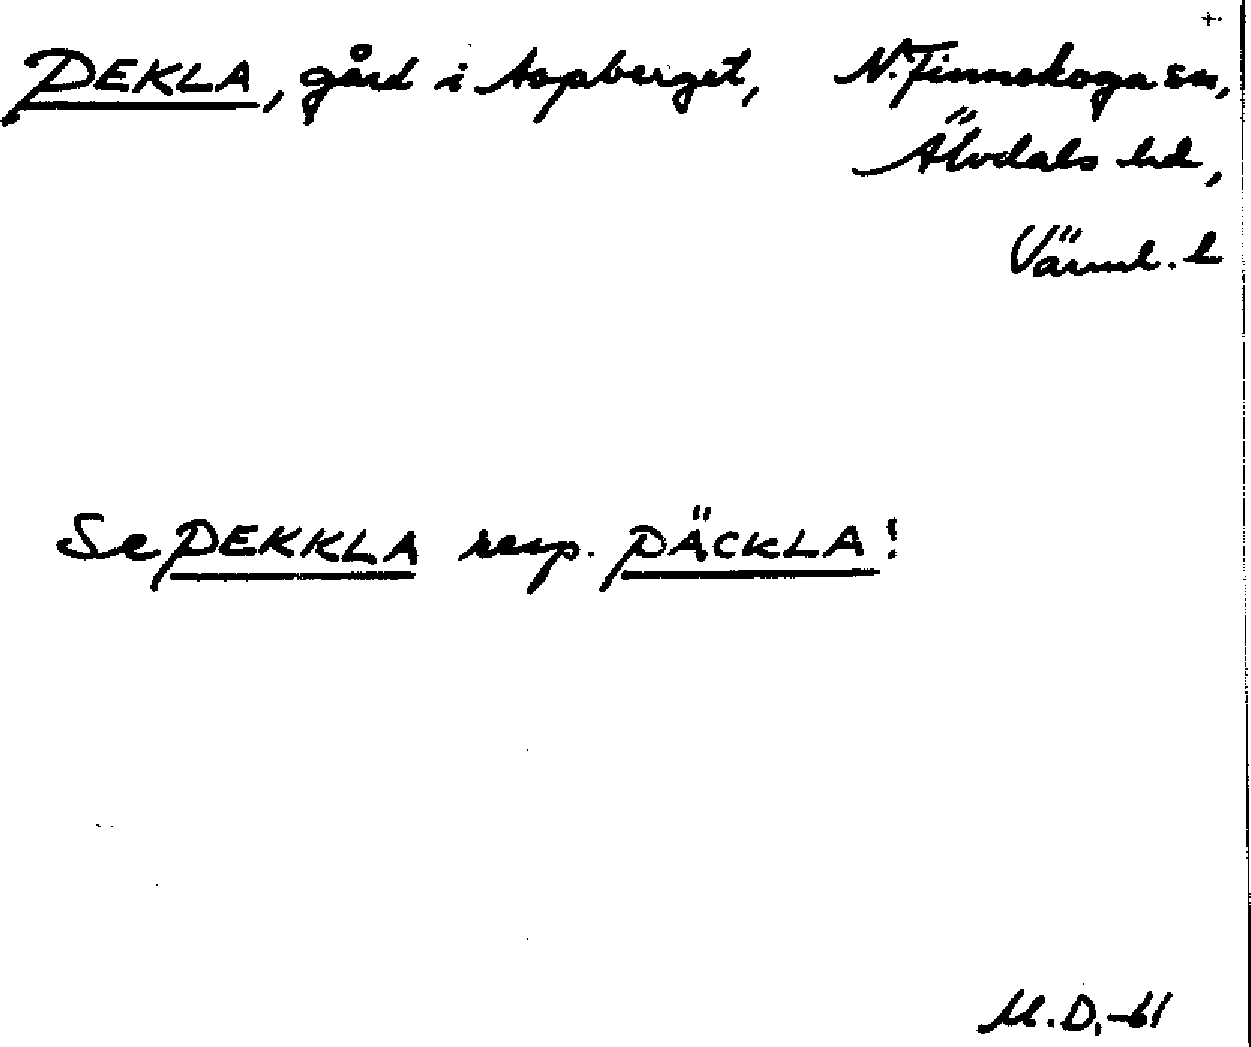 +.
PEKLA, gård i Aspberget, N. Finnskoga sn,
Älvdals hd,
Värml. l
Se PEKKLA resp. PÄCKLA!
M.D.-61